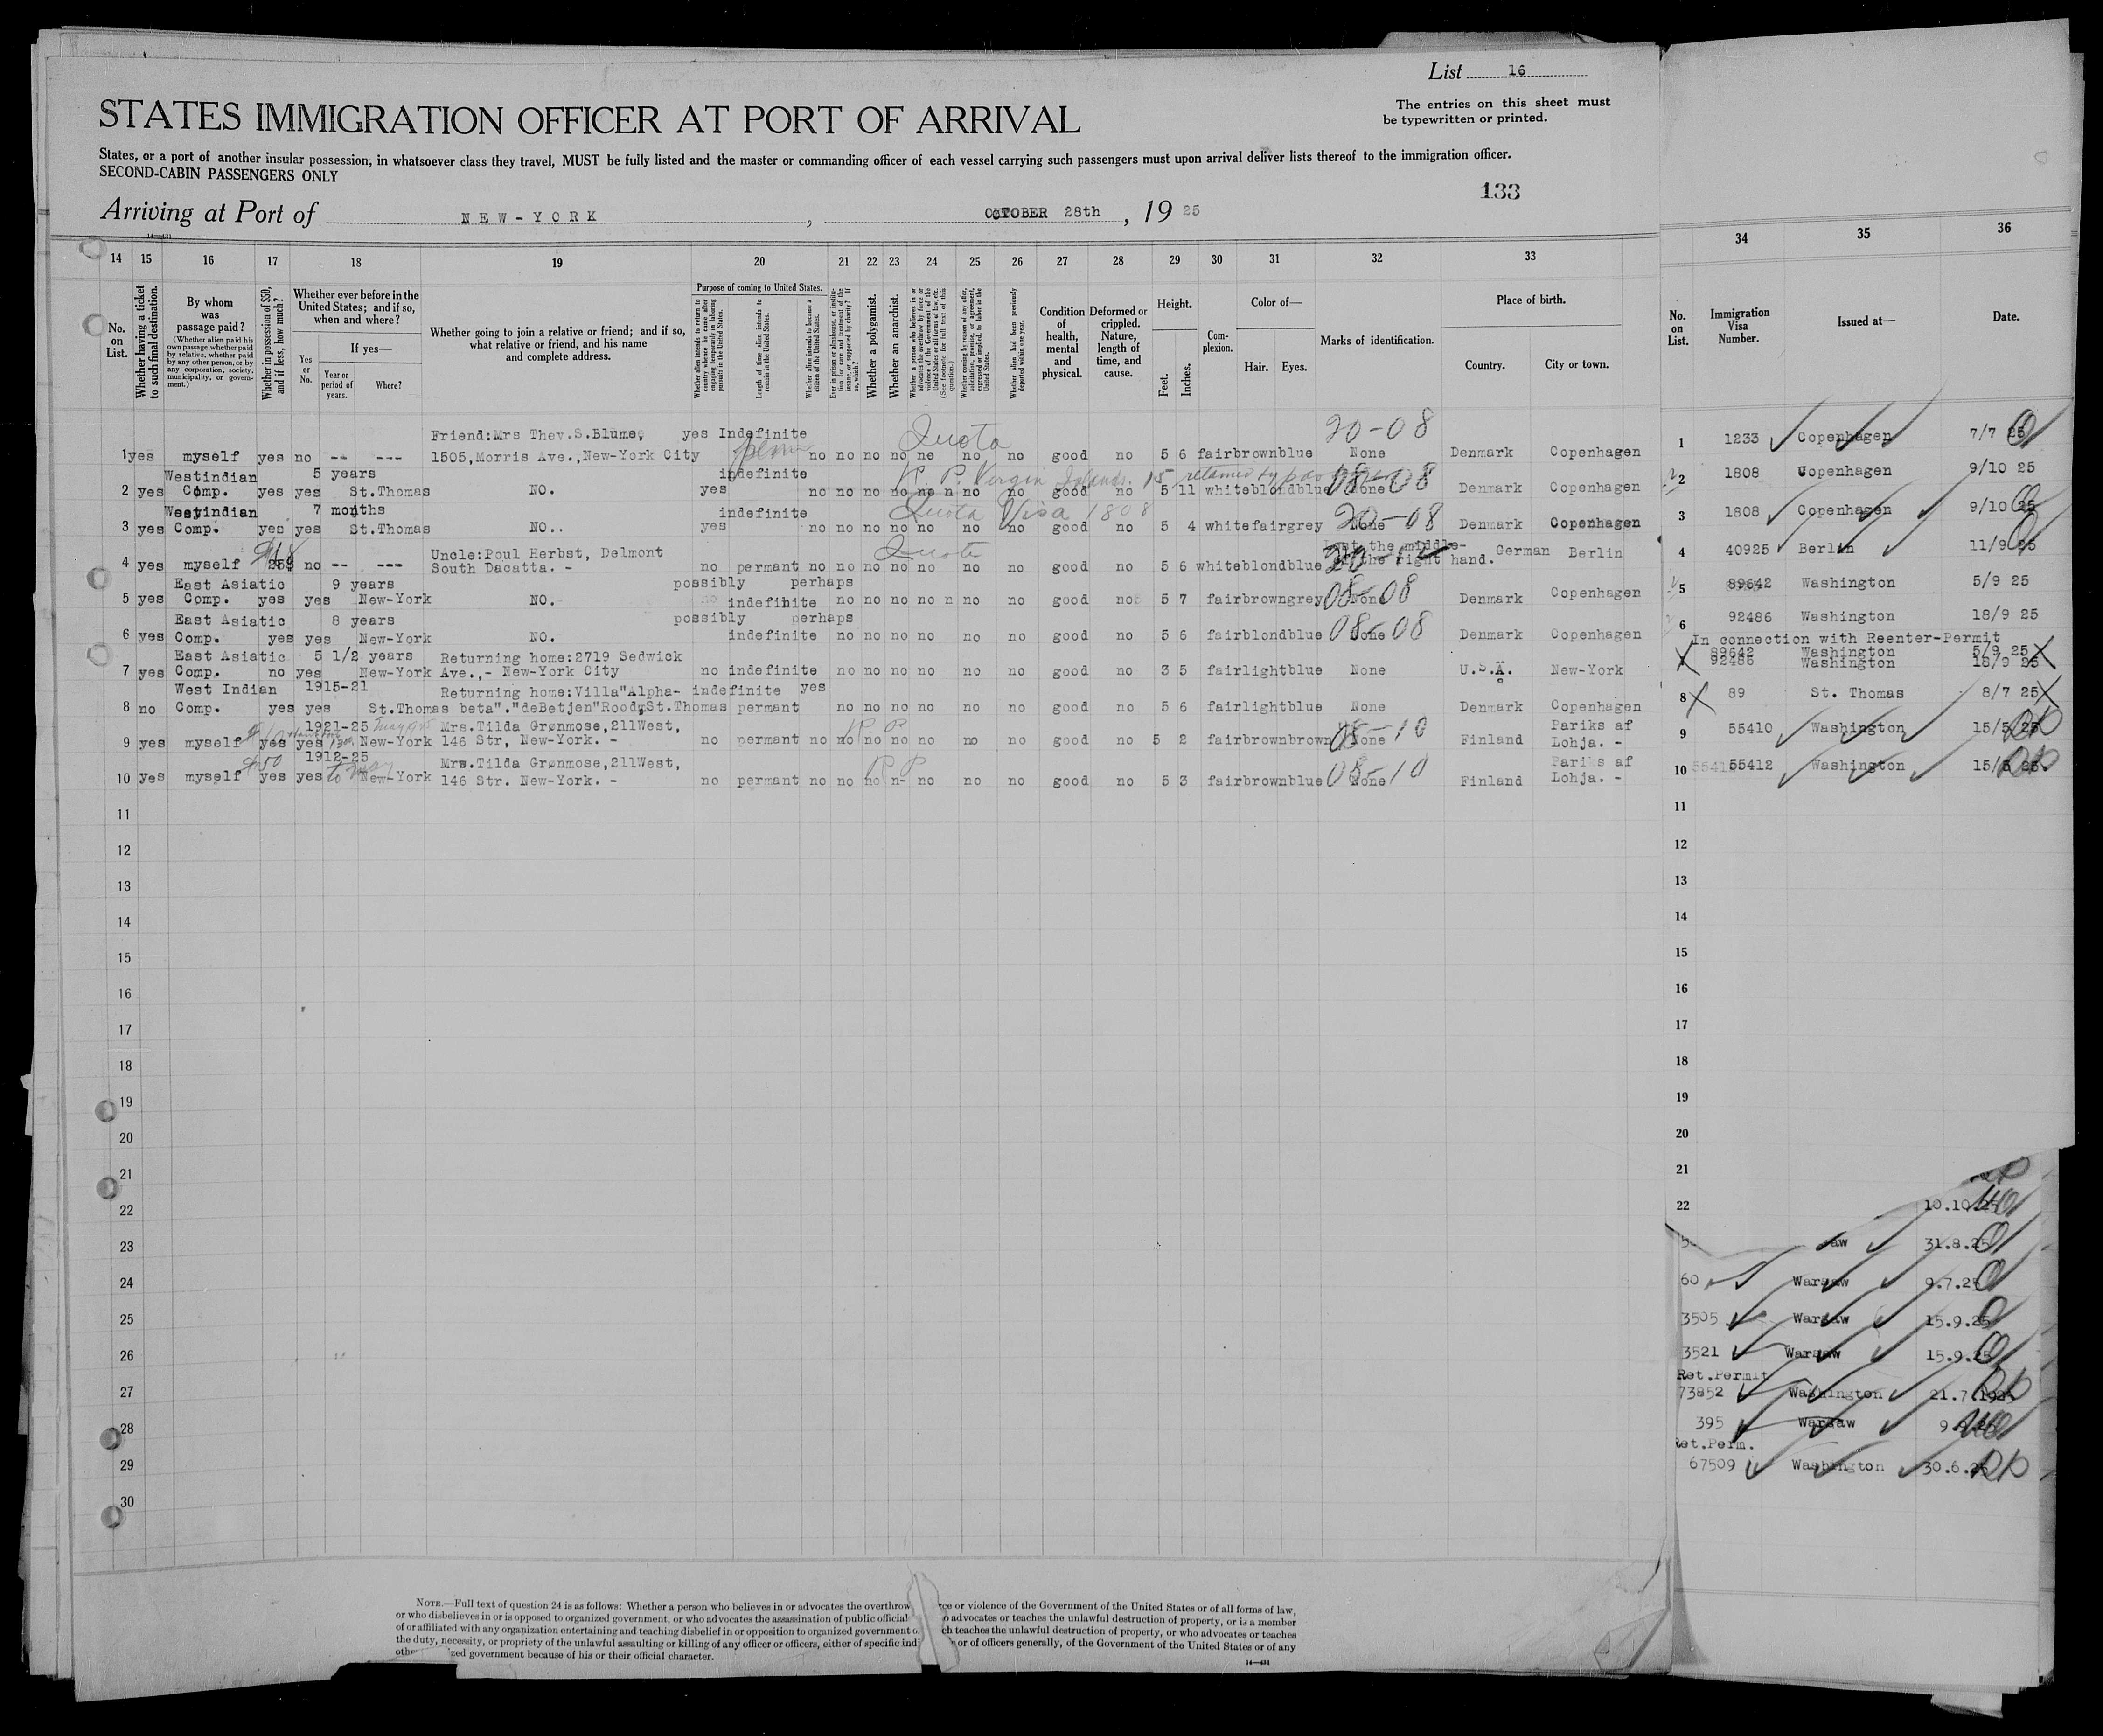 List 16
The entries on this sheet must
be typewritten or printed.
STATES IMMIGRATION OFFICER AT PORT OF ARRIVAL
States, or a port of another insular possession, in whatsoever class they travel, MUST be fully listed and the master or commanding officer of each vessel carrying such passengers must upon arrival deliver lists thereof to the immigration officer.
SECOND-CABIN PASSENGERS ONLY
133
Arriving at Port of NEW-YORK, OCTOBER 28th, 1925
14—431
14 15 16 17 18 19 20 21 22 23 24 25 26 27 28 29 30 31 32 33 34 35 36
No. on List.
Whether having a ticket to such final destination.
By whom was passage paid?
(Whether alien paid his own passage, whether paid by relative, whether paid by any other person, or by any corporation, society, municipality, or government.)
Whether in possession of $50, and if less, how much?
Whether ever before in the United States; and if so, when and where?
Yes or No.
If yes—
Year or period of years.
Where?
Whether going to join a relative or friend; and if so, what relative or friend, and his name and complete address.
Purpose of coming to United States.
Whether alien intends to return to country whence he came after engaging temporarily in laboring pursuits in the United States.
Length of time alien intends to remain in the United States.
Whether alien intends to become a citizen of the United States.
Ever in prison or almshouse, or institution for care and treatment of the insane, or supported by charity? If so, which?
Whether a polygamist.
Whether an anarchist.
Whether a person who believes in or advocates the overthrow by force or violence of the Government of the United States or all forms of law, etc. (See footnote for full text of this question.)
Whether coming by reason of any offer, solicitation, promise, or agreement, expressed or implied, to labor in the United States.
Whether alien had been previously deported within one year.
Condition of health, mental and physical.
Deformed or crippled. Nature, length of time, and cause.
Height.
Feet. Inches.
Complexion.
Color of—
Hair. Eyes.
Marks of identification.
Place of birth.
Country. City or town.
No. on List.
Immigration Visa Number.
Issued at—
Date.
Friend:Mrs Thev.S.Blume, yes Indefinite Quota 20-08
1 yes myself yes no -- --- 1505,Morris Ave.,New-York City no no no no no no no good no 5 6 fair brown blue None Denmark Copenhagen 1 1233 Copenhagen 7/7 25
Westindian 5 years indefinite R.P. Virgin Islands.
2 yes Comp. yes yes St.Thomas NO. yes no no no no no no no good no 5 11 white blond blue None 08-08 Denmark Copenhagen 2 1808 Copenhagen 9/10 25
Westindian 7 months indefinite Quota Visa 1808
3 yes Comp. yes yes St.Thomas NO.. yes no no no no no no no good no 5 4 white fair grey None 20-08 Denmark Copenhagen 3 1808 Copenhagen 9/10 25
Uncle:Poul Herbst, Delmont Quota Lost the middle-
4 yes myself no -- --- South Dacatta. - no permant no no no no no no no good no 5 6 white blond blue of the right hand. German Berlin 4 40925 Berlin 11/9 25
East Asiatic 9 years possibly perhaps
5 yes Comp. yes yes New-York NO. indefinite no no no no no no good no 5 7 fair brown grey None 08-08 Denmark Copenhagen 5 89642 Washington 5/9 25
East Asiatic 8 years possibly perhaps
6 yes Comp. yes yes New-York NO. indefinite no no no no no no good no 5 6 fair blond blue None 08-08 Denmark Copenhagen 6 92486 Washington 18/9 25
In connection with Reenter-Permit
East Asiatic 5 1/2 years Returning home:2719 Sedwick 89642 Washington 5/9 25
7 yes Comp. no yes New-York Ave.,- New-York City no indefinite no no no no no no good no 3 5 fair light blue None U.S.A. New-York 7 92486 Washington 18/9 25
West Indian 1915-21 Returning home:Villa"Alpha- indefinite yes
8 no Comp. yes yes St.Thomas beta"."deBetjen"Roodg St.Thomas permant no no no no no no good no 5 6 fair light blue None Denmark Copenhagen 8 89 St. Thomas 8/7 25
1921-25 Mrs.Tilda Grønmose,211West, R P Pariks af
9 yes myself yes yes New-York 146 Str, New-York. - no permant no no no no no no no good no 5 2 fair brown brown None 08-10 Finland Lohja. - 9 55410 Washington 15/5 25
$50 1912-25 to May Mrs.Tilda Grønmose,211West, R P Pariks af
10 yes myself yes yes New-York 146 Str. New-York. - no permant no no no n- no no no good no 5 3 fair brown blue None 08-10 Finland Lohja. - 10 55412 Washington 15/5 25.
11 11
12 12
13 13
14 14
15 15
16 16
17 17
18 18
19 19
20 20
21 21
22 22 10.10.25
23 31.8.25
24 60 Warsaw 9.7.25
25 3505 Warsaw 15.9.25
26 3521 Warsaw 15.9.25
Ret.Permit
27 73852 Washington 21.7.1925
28 395 Warsaw
Ret.Perm.
29 67509 Washington 30.6.25
30
NOTE.—Full text of question 24 is as follows: Whether a person who believes in or advocates the overthrow ce or violence of the Government of the United States or of all forms of law,
or who disbelieves in or is opposed to organized government, or who advocates the assassination of public official o advocates or teaches the unlawful destruction of property, or is a member
of or affiliated with any organization entertaining and teaching disbelief in or opposition to organized government ch teaches the unlawful destruction of property, or who advocates or teaches
the duty, necessity, or propriety of the unlawful assaulting or killing of any officer or officers, either of specific indi or of officers generally, of the Government of the United States or of any
othe zed government because of his or their official character.
14—431